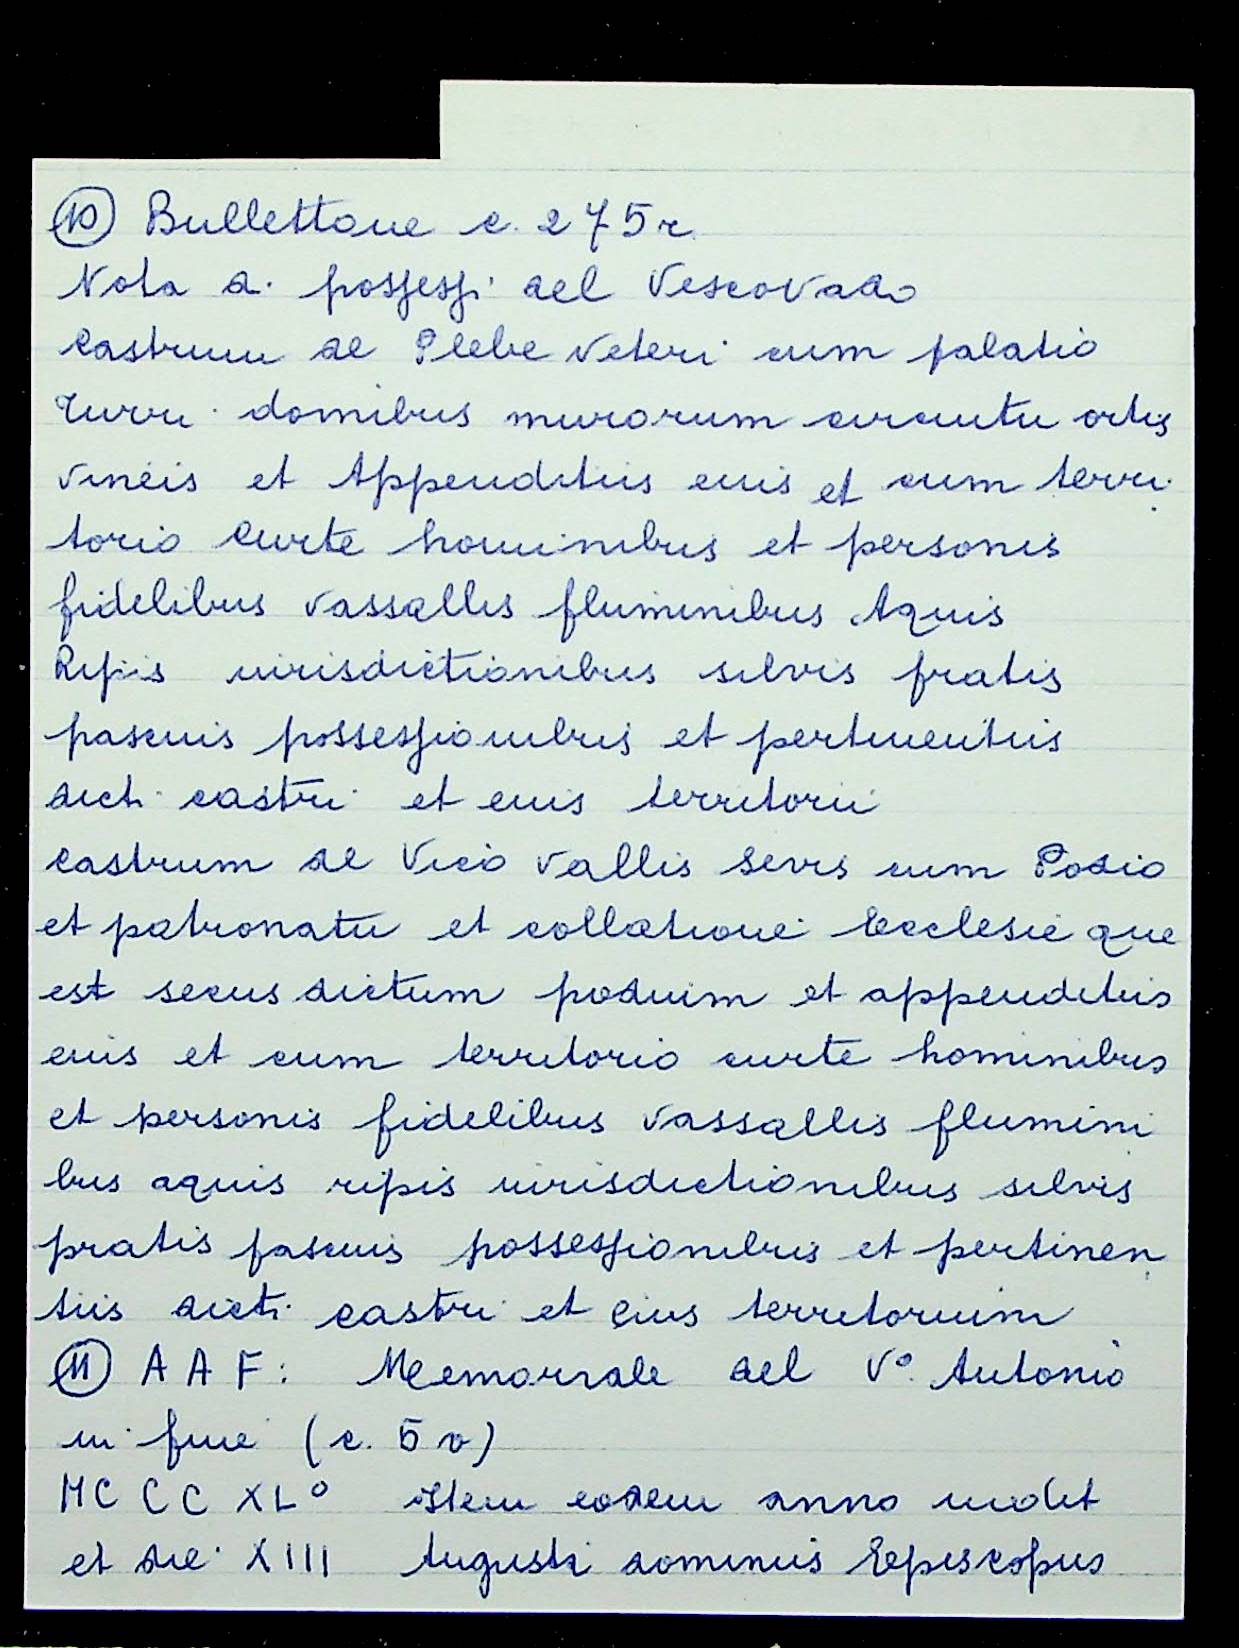 ⑩ Bullettone c. 275r.
Nota di possessi del Vescovado
Castrum de Plebe Veteri cum palatio
Turri domibus murorum circuitu ortis
vineis et Appenditiis eius et cum terri
torio Curte hominibus et personis
fidelibus vassallis fluminibus Aquis
Ripis iurisdictionibus silvis pratis
pascuis possessionibus et pertinentiis
dicti castri et eius territorii
Castrum de Vico Vallis Sevis cum Podio
et patronatu et collatione Ecclesie que
est secus dictum podium et appenditiis
eius et cum territorio curte hominibus
et personis fidelibus vassallis flumini
bus aquis ripis iurisdictionibus silvis
pratis pascuis possessionibus et pertinen
tiis dicti castri et eius territorium
⑪ A A F: Memoriale del V° Antonio
in fine (c. 5 v)
MC C C XL° Item eodem anno indit
et die XIII Augusti dominus Episcopus